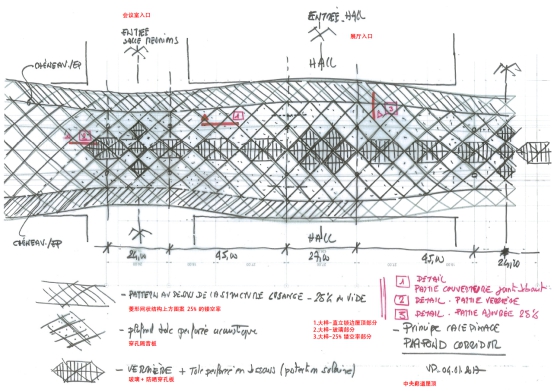 会议室入口
ENTRÉE HALL
ENTRÉE
SALLE REUNIONS
展厅入口
HALL
CHÉNEAU/EP
1
3
2
CHÉNEAU/EP
HALL
45,00
27,00
45,00
- PATTERN AU DESSUS DE LA STRUCTURE LOSANGE - 25% A VIDE
菱形网状结构上方图案 25% 的镂空率
- plafond tole perforée acoustique
穿孔隔音板
- VERRIÈRE + Tole perforée en dessous (protection solaire)
玻璃 + 防晒穿孔板
1 DETAIL
PARTIE COUVERTURE joint debout
2 DETAIL - PARTIE VERRIÈRE
3 DETAIL - PARTIE AJOURÉE 25%
1.大样-直立锁边屋顶部分
2.大样-玻璃部分
3.大样-25% 镂空率部分
- Principe CALEPINAGE
PLAFOND CORRIDOR
中央廊道屋顶